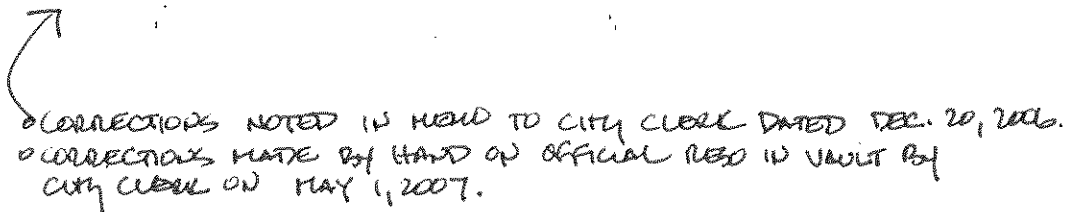 CORRECTIONS NOTED IN MEMO TO CITY CLERK DATED DEC. 20, 2006.
CORRECTIONS MADE BY HAND ON OFFICIAL RESO IN VAULT BY
CITY CLERK ON MAY 1, 2007.